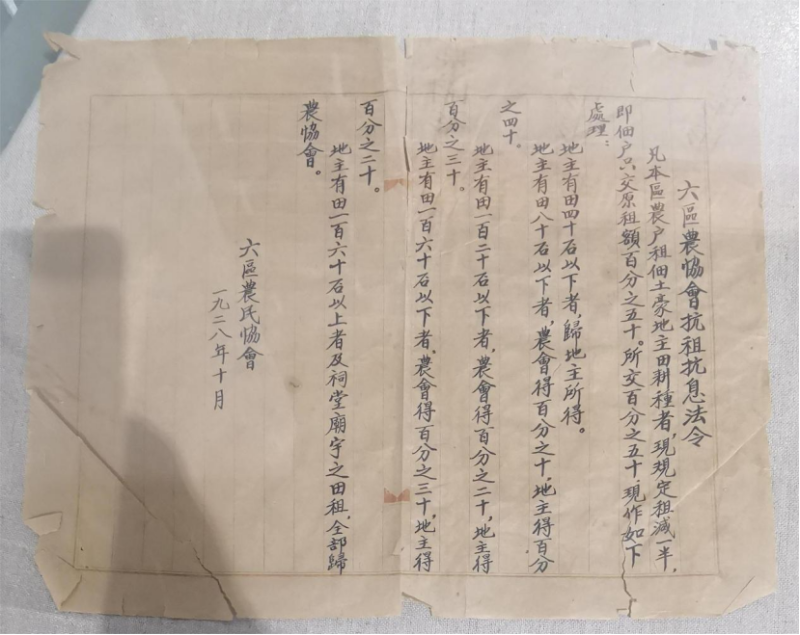 六區農協會抗租抗息法令
凡本區農户租佃土豪地主田耕種者,現規定租減一半,
即佃户只交原租額百分之五十。所交百分之五十,現作如下
處理:
地主有田四十石以下者,歸地主所得。
地主有田八十石以下者,農會得百分之十,地主得百分
之四十。
地主有田一百二十石以下者,農會得百分之二十,地主得
百分之三十。
地主有田一百六十石以下者,農會得百分之三十,地主得
百分之二十。
地主有田一百六十石以上者及祠堂廟宇之田租,全部歸
農協會。
六區農民協會
一九二八年十月